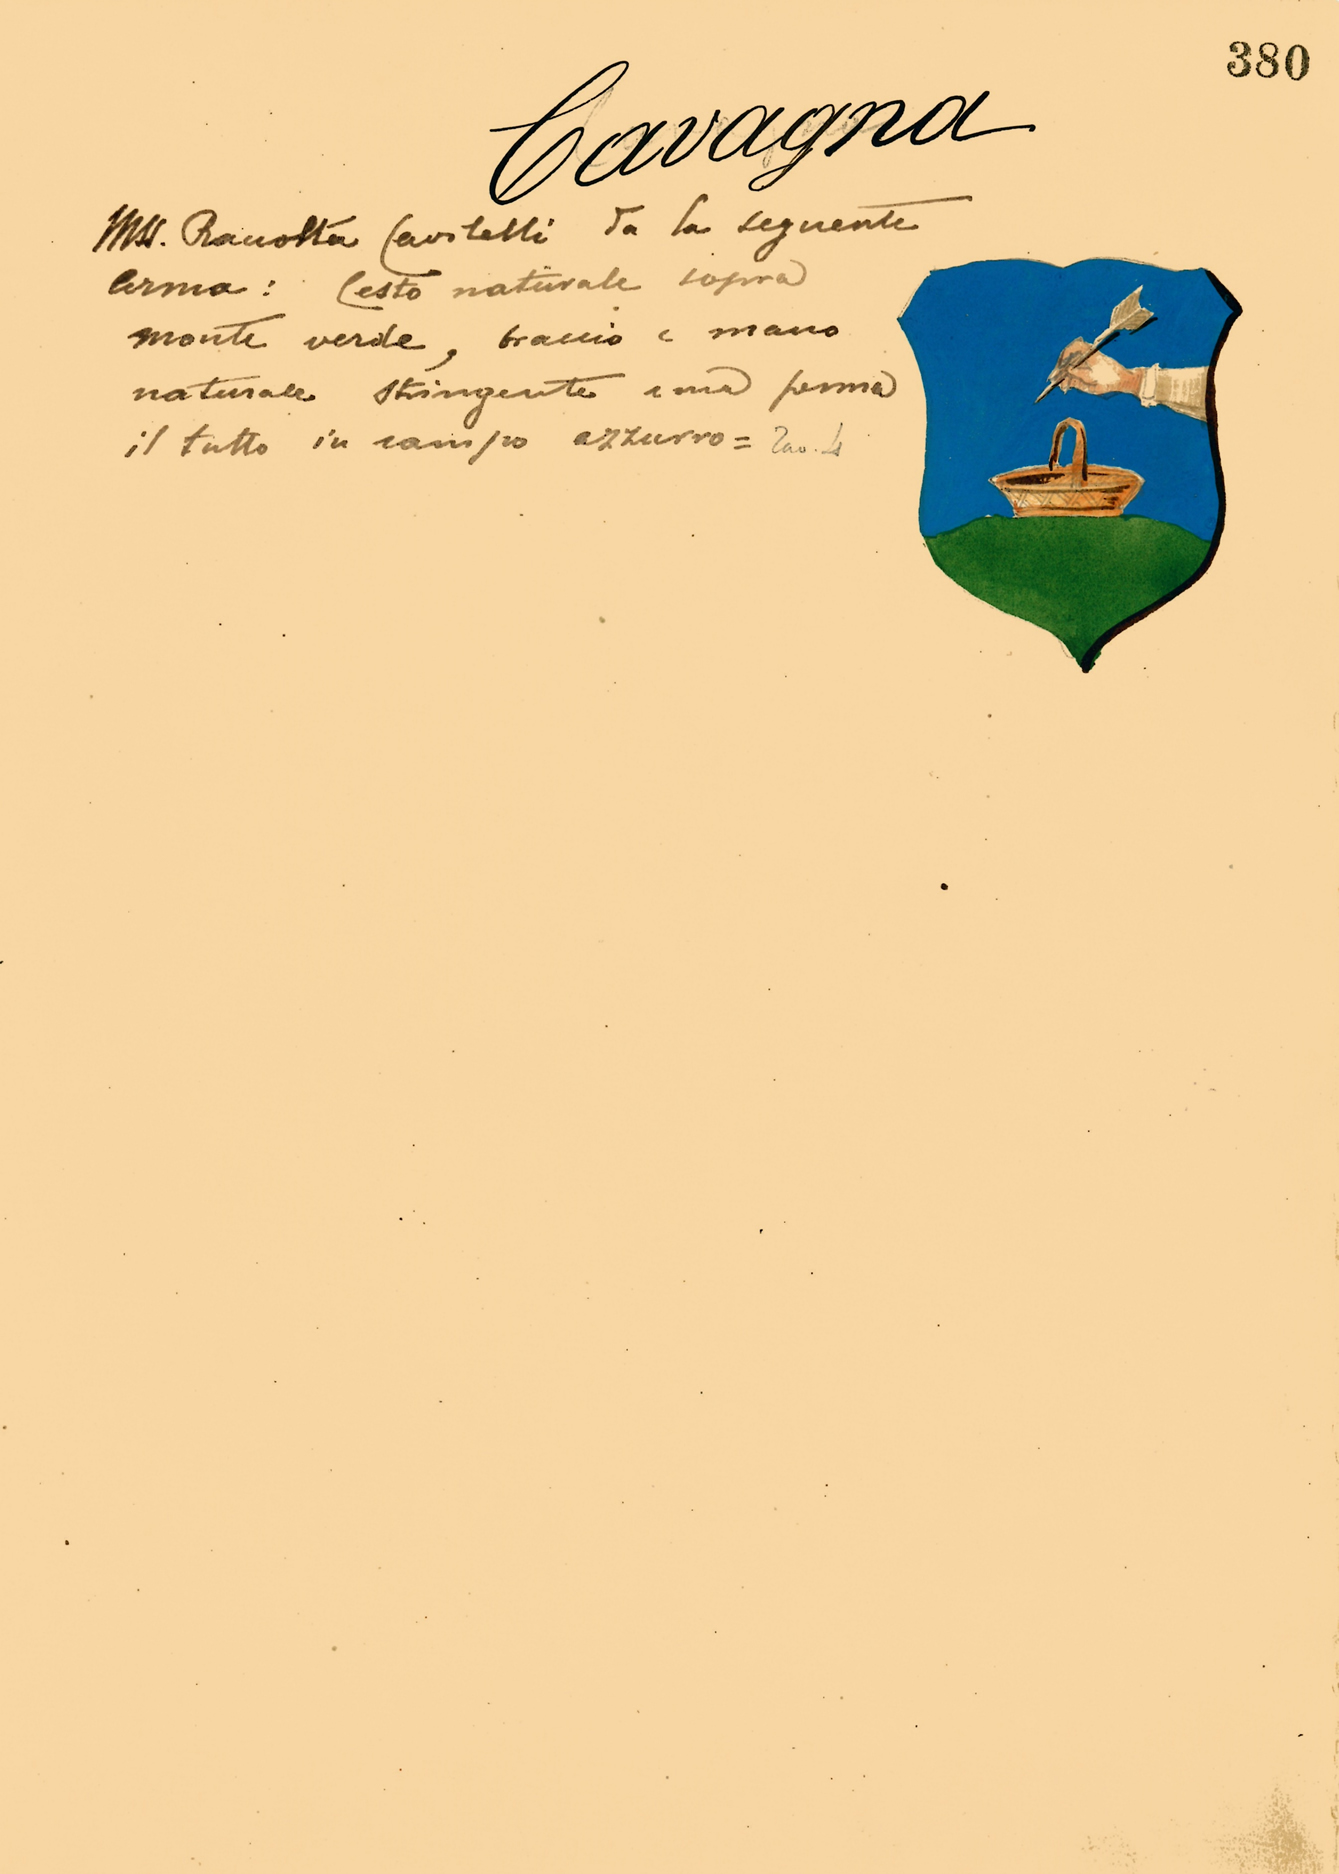 380
Cavagna
Mss. Raccolta Cavitelli dà la seguente
Arma: Cesto naturale sopra
monte verde, braccio e mano
naturale stringente una penna
il tutto in campo azzurro =